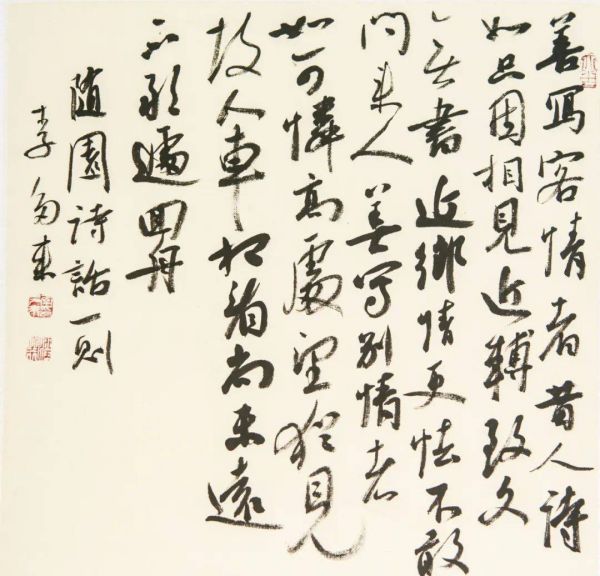 善寫客情者昔人詩
如只因相見近轉致久
無書近鄉情更怯不敢
問來人善寫別情者
如可憐高處望猶見
故人車相看尚未遠
不敢遽回舟
隨園詩話一則
李